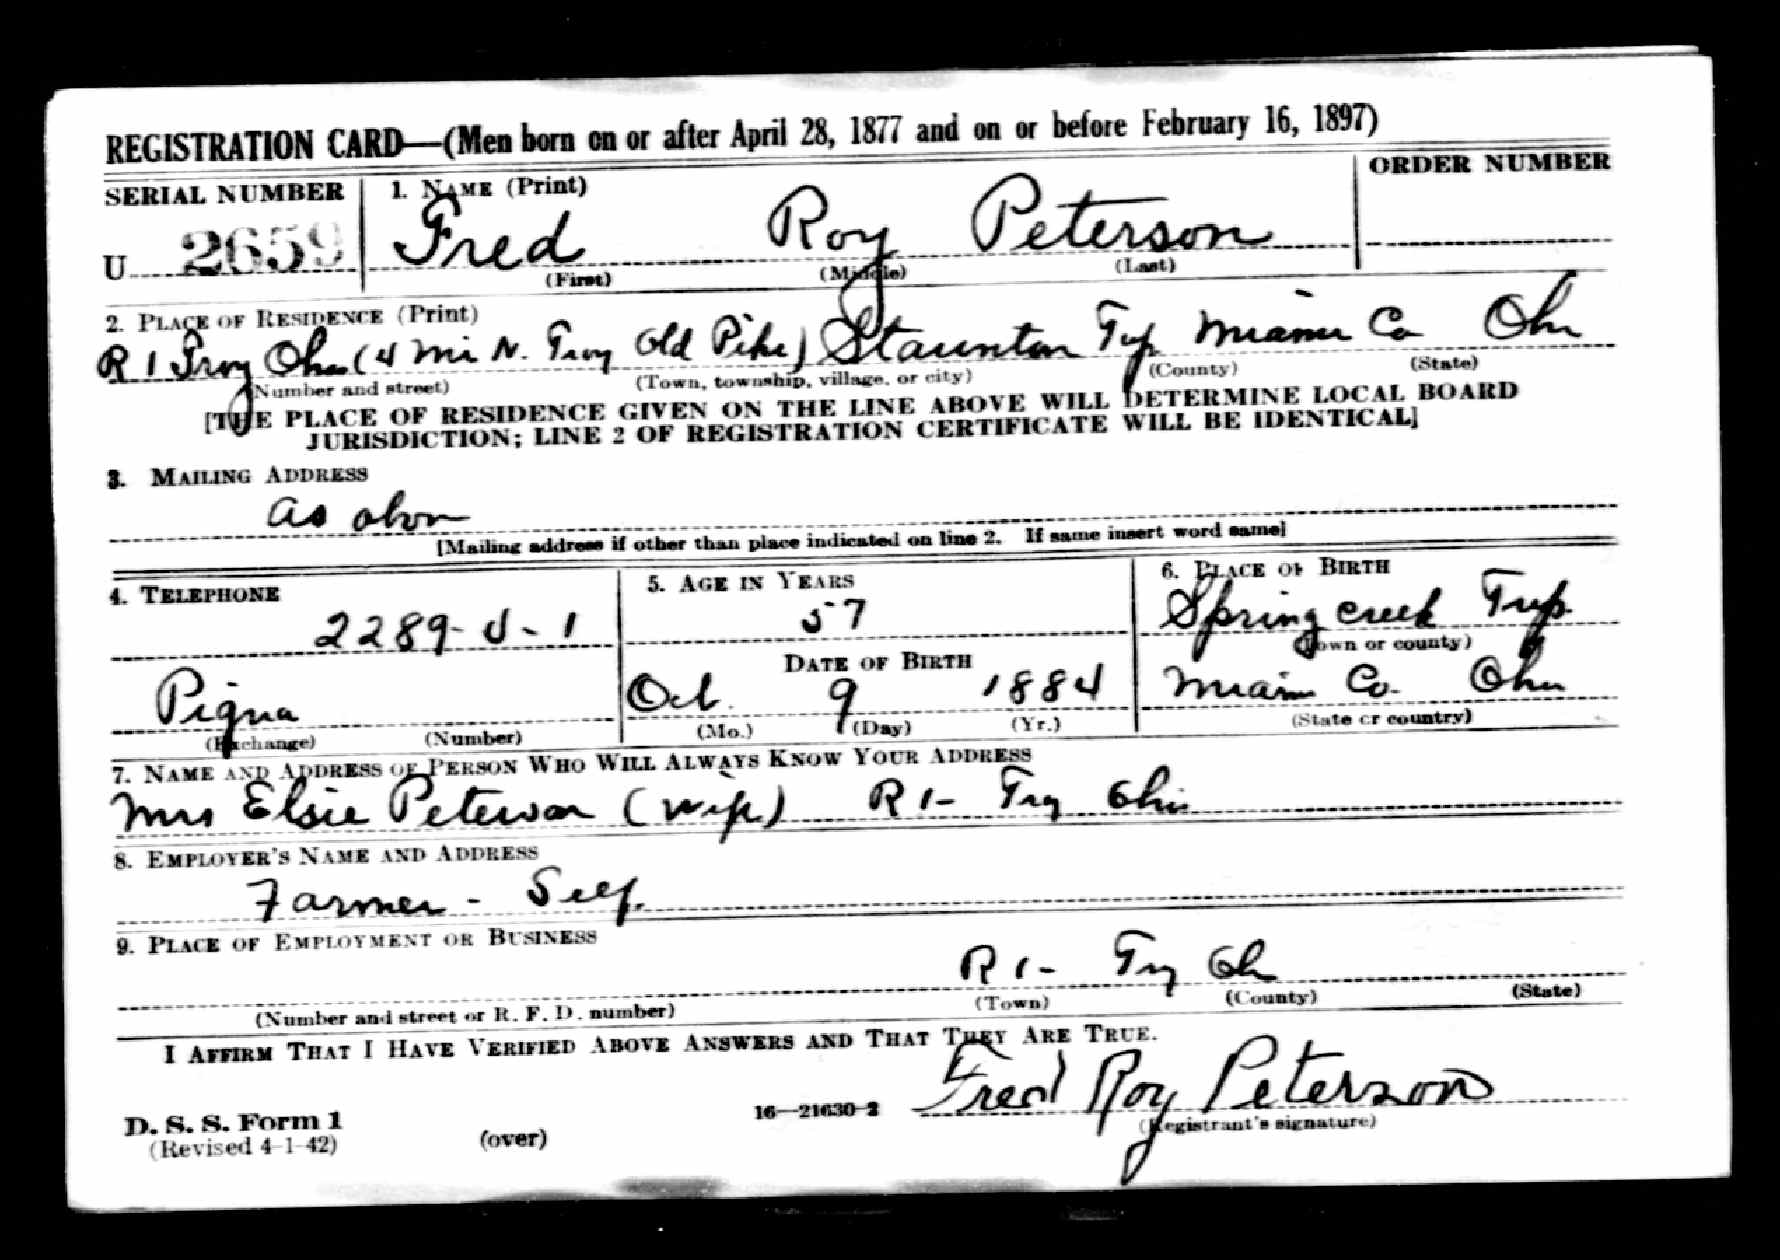 REGISTRATION CARD—(Men born on or after April 28, 1877 and on or before February 16, 1897)
SERIAL NUMBER 1. NAME (Print) ORDER NUMBER
U 2659 Fred Roy Peterson
(First) (Middle) (Last)
2. PLACE OF RESIDENCE (Print)
R 1 Troy Ohio (4 mi N. Troy Old Pike) Staunton Twp Miami Co Ohio
(Number and street) (Town, township, village, or city) (County) (State)
[THE PLACE OF RESIDENCE GIVEN ON THE LINE ABOVE WILL DETERMINE LOCAL BOARD
JURISDICTION; LINE 2 OF REGISTRATION CERTIFICATE WILL BE IDENTICAL]
3. MAILING ADDRESS
as above
[Mailing address if other than place indicated on line 2. If same insert word same]
4. TELEPHONE 5. AGE IN YEARS 6. PLACE OF BIRTH
2289-J-1 57 Springcreek Twp.
DATE OF BIRTH (Town or county)
Piqua Oct. 9 1884 Miami Co. Ohio
(Exchange) (Number) (Mo.) (Day) (Yr.) (State or country)
7. NAME AND ADDRESS OF PERSON WHO WILL ALWAYS KNOW YOUR ADDRESS
Mrs Elsie Peterson (wife) R 1- Troy Ohio
8. EMPLOYER'S NAME AND ADDRESS
Farmer - Self.
9. PLACE OF EMPLOYMENT OR BUSINESS
R 1- Troy Oh
(Number and street or R. F. D. number) (Town) (County) (State)
I AFFIRM THAT I HAVE VERIFIED ABOVE ANSWERS AND THAT THEY ARE TRUE.
Fred Roy Peterson
D. S. S. Form 1 16—21630-2 (Registrant's signature)
(Revised 4-1-42) (over)